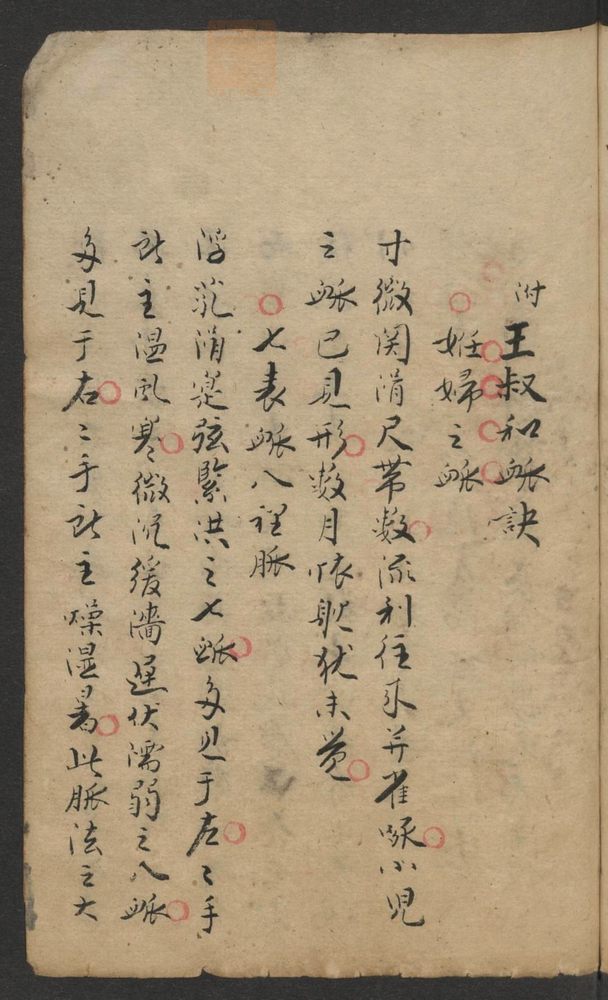 附 王叔和脉訣
妊婦之脉
寸微関滑尺帯数流利往来并雀啄小児
之脉已見形数月怀躭犹未觉
七表脉八裡脈
浮芤滑寔弦緊洪之七脉多見于左〻手
所主温風寒微沉緩濇遲伏濡弱之八脉
多見于右〻手所主燥湿暑此脈法之大